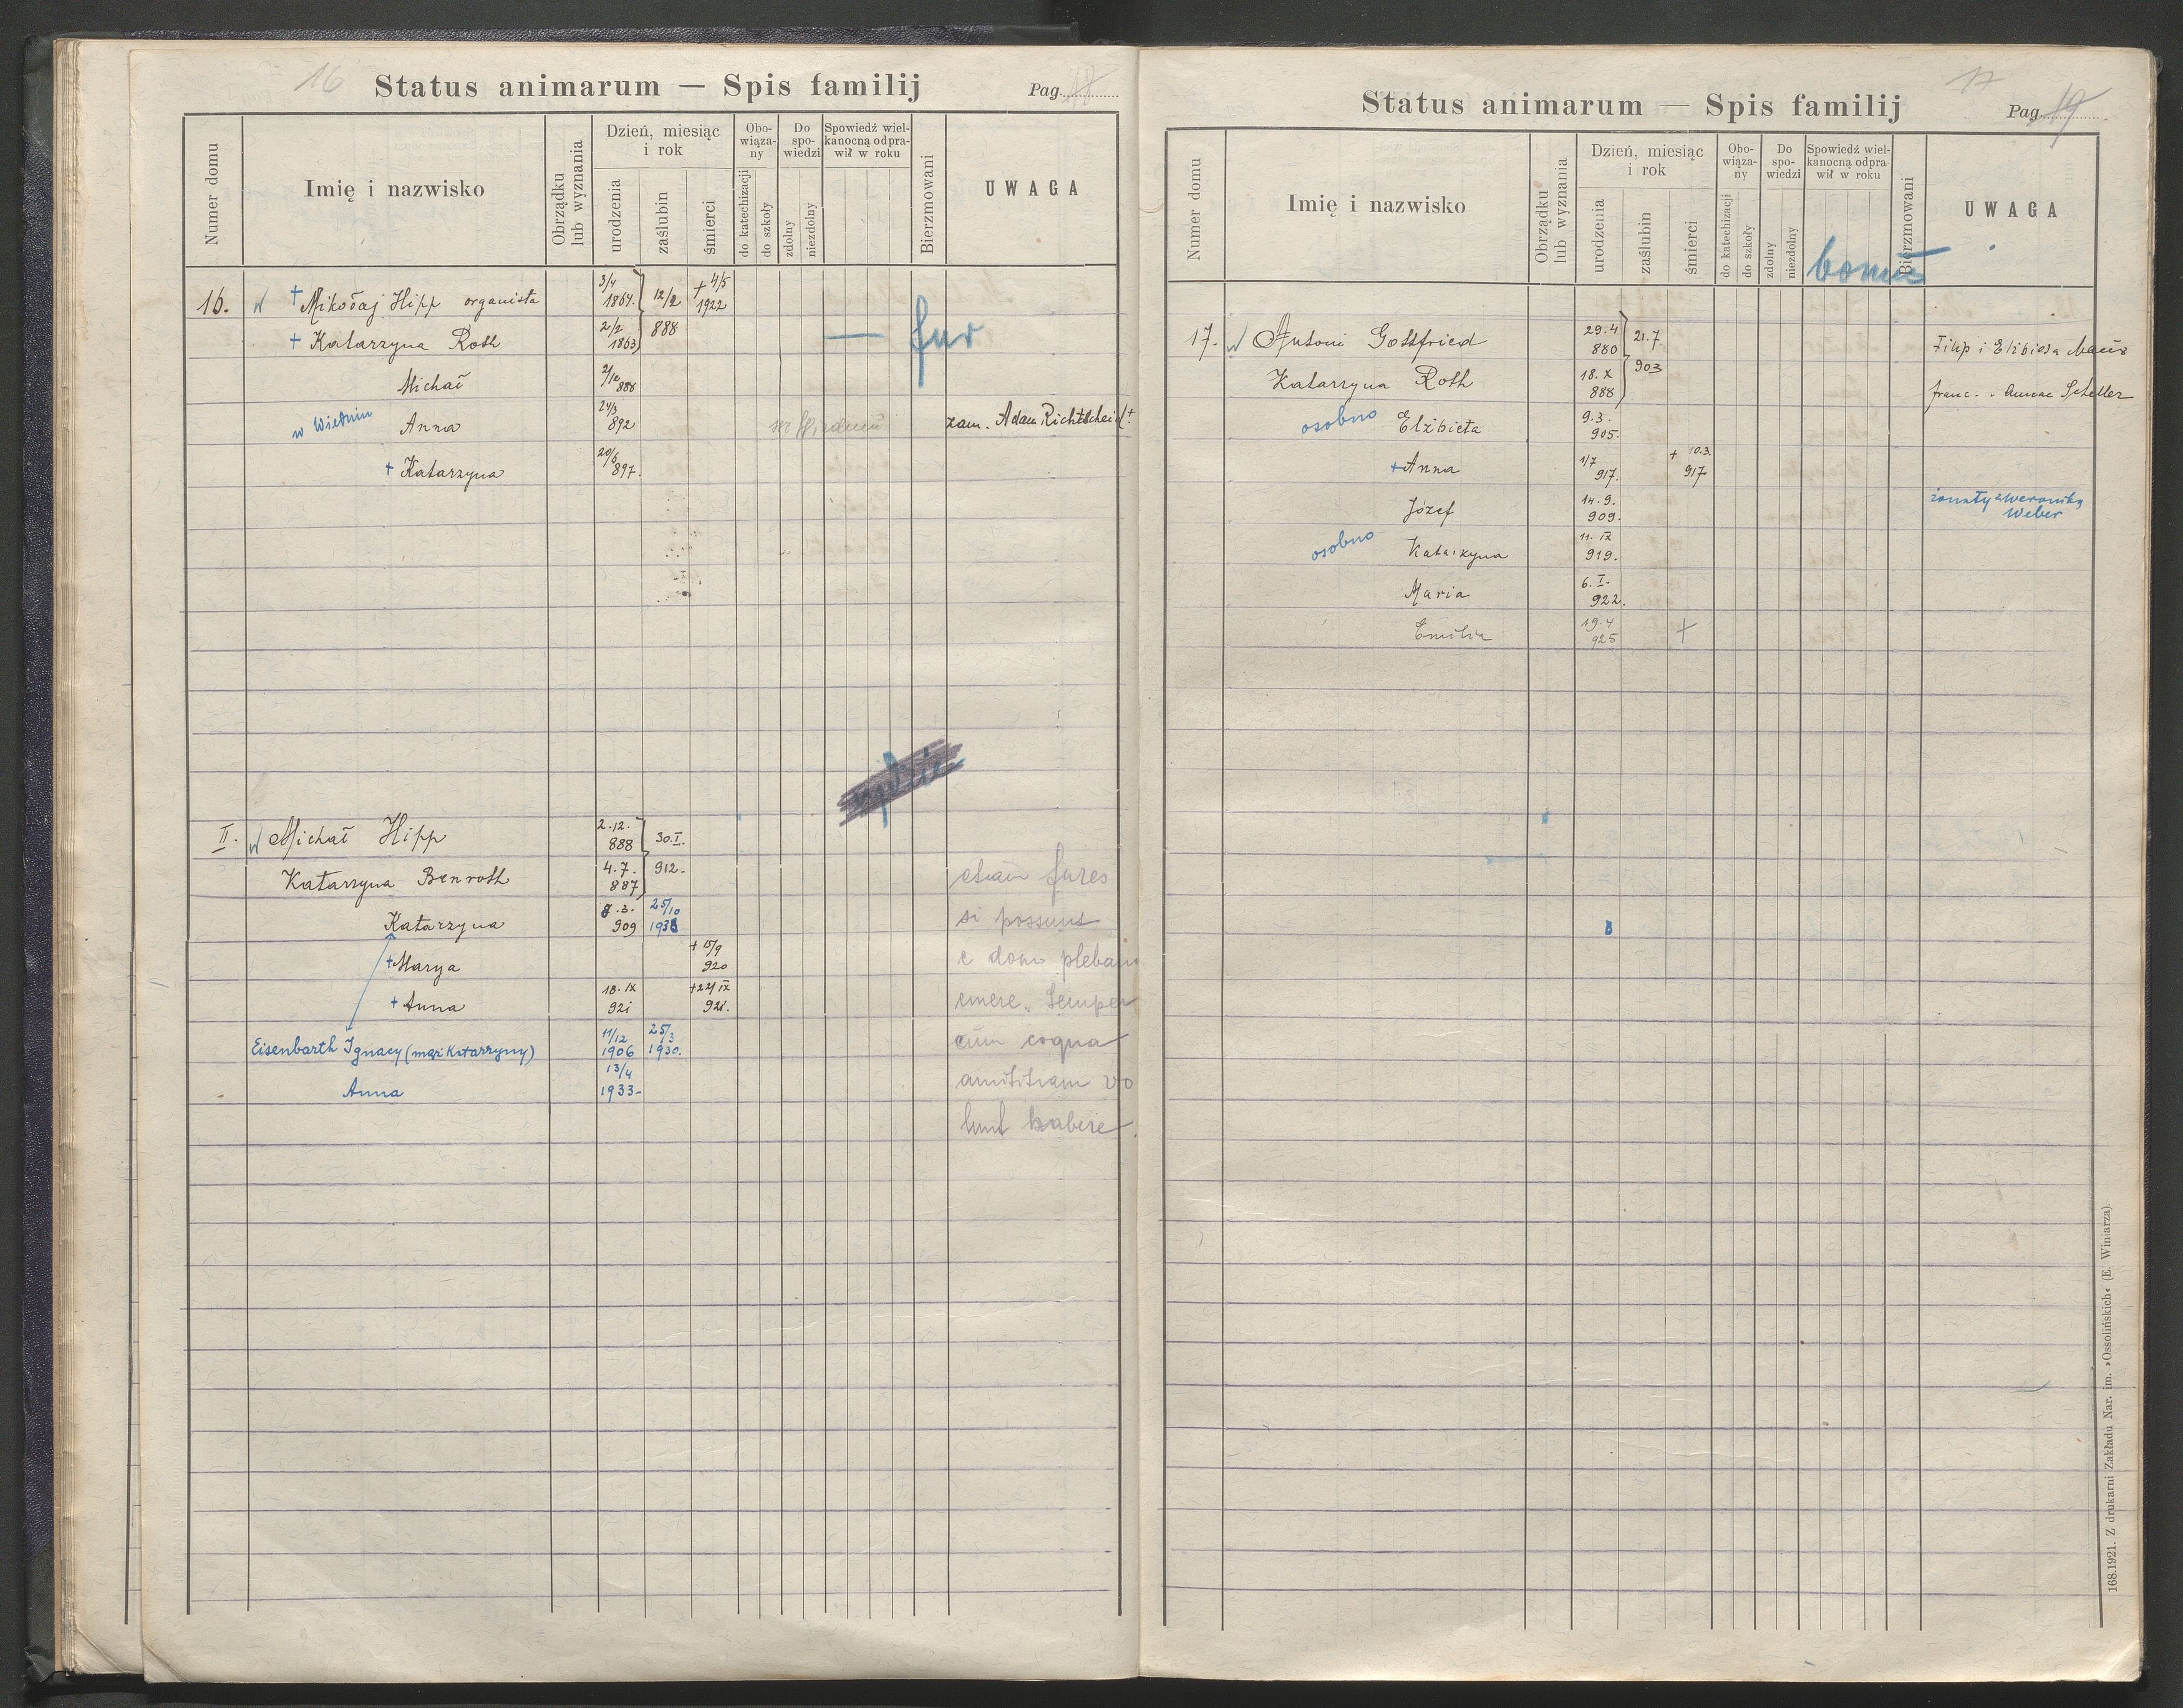 16
Status animarum — Spis familij
Pag. 18
Numer domu
Imię i nazwisko
Obrządku
lub wyznania
Dzień, miesiąc
i rok
urodzenia
zaślubin
śmierci
Obo-
wiąza-
ny
do katechizacji
do szkoły
Do
spo-
wiedzi
zdolny
niezdolny
Spowiedź wiel-
kanocną odpra-
wił w roku
Bierzmowani
UWAGA
16. + Mikołaj Hipp organista 3/4 1864. 12/2 + 4/5 1922
+ Katarzyna Roth 2/2 1863 888 — fur
Michał 2/12 888
w Wiedniu Anna 24/3 892 w Wiedniu zam. Adam Richtscheid+
+ Katarzyna 20/6 897.
II. Michał Hipp 2.12. 888 30.I.
Katarzyna Benroth 4.7. 887 912. etiam fures
Katarzyna 8.3. 909 25/10 1938 si possunt
+ Marya + 15/9 920 e domo plebani
+ Anna 18. IX 921 +22/IX 921. emere. Semper
Eisenbarth Ignacy (mąż Katarzyny) 11/12 1906 25/3 1930. cum cogna
Anna 13/4 1933- amititiam vo
lunt habere.
17
Status animarum — Spis familij
Pag. 19
Numer domu
Imię i nazwisko
Obrządku
lub wyznania
Dzień, miesiąc
i rok
urodzenia
zaślubin
śmierci
Obo-
wiąza-
ny
do katechizacji
do szkoły
Do
spo-
wiedzi
zdolny
niezdolny
Spowiedź wiel-
kanocną odpra-
wił w roku
Bierzmowani
UWAGA
17. Antoni Gottfried 29.4 880 21.7 Filip i Elżbieta
Katarzyna Roth 18.X 888 903 franc. Annae Scheller
osobno Elżbieta 9.3. 905.
+ Anna 1/7 917. + 10.3. 917
Józef 14.9. 909. żonaty z Weroniką
Weber
osobno Katarzyna 11. IX 919.
Maria 6.I. 922.
Emilia 19.4 925 +
168.1921. Z drukarni Zakładu Nar. im. »Ossolińskich« (E. Winiarza).